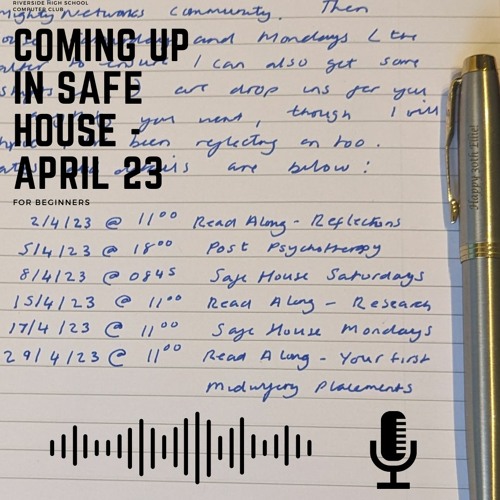 RIVERSIDE HIGH SCHOOL
COMPUTER CLUB
COMING UP
IN SAFE
HOUSE -
APRIL 23
FOR BEGINNERS
Mighty Networks Community. Then
and Mondays ( the
to ensure I can also get some
are drop ins for you
you want, though I will
been reflecting on too.
details are below:
2/4/23 @ 11⁰⁰ Read Along - Reflections
5/4/23 @ 18⁰⁰ Post Psychotherapy
8/4/23 @ 0845 Safe House Saturdays
15/4/23 @ 11⁰⁰ Read Along - Research
17/4/23 @ 11⁰⁰ Safe House Mondays
29/4/23 @ 11⁰⁰ Read Along - Your first
Midwifery Placements
Happy 30th